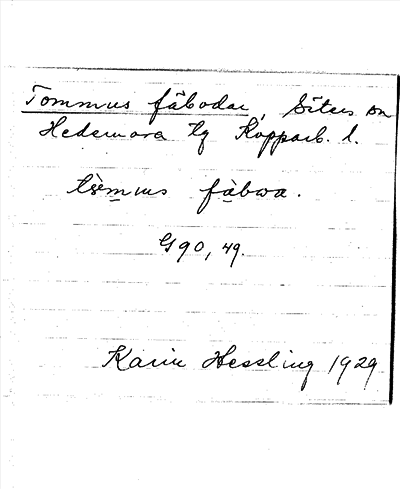 Tommus fäbodar, Säters sn
Hedemora tg Kopparb. l.
fàbwa.
G90, 49.
Karin Hessling 1929